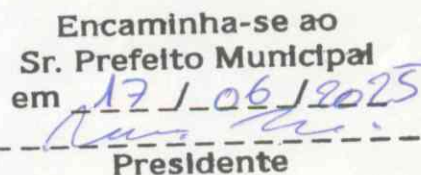 Encaminha-se ao
Sr. Prefeito Municipal
em 17 / 06 / 2025
Presidente